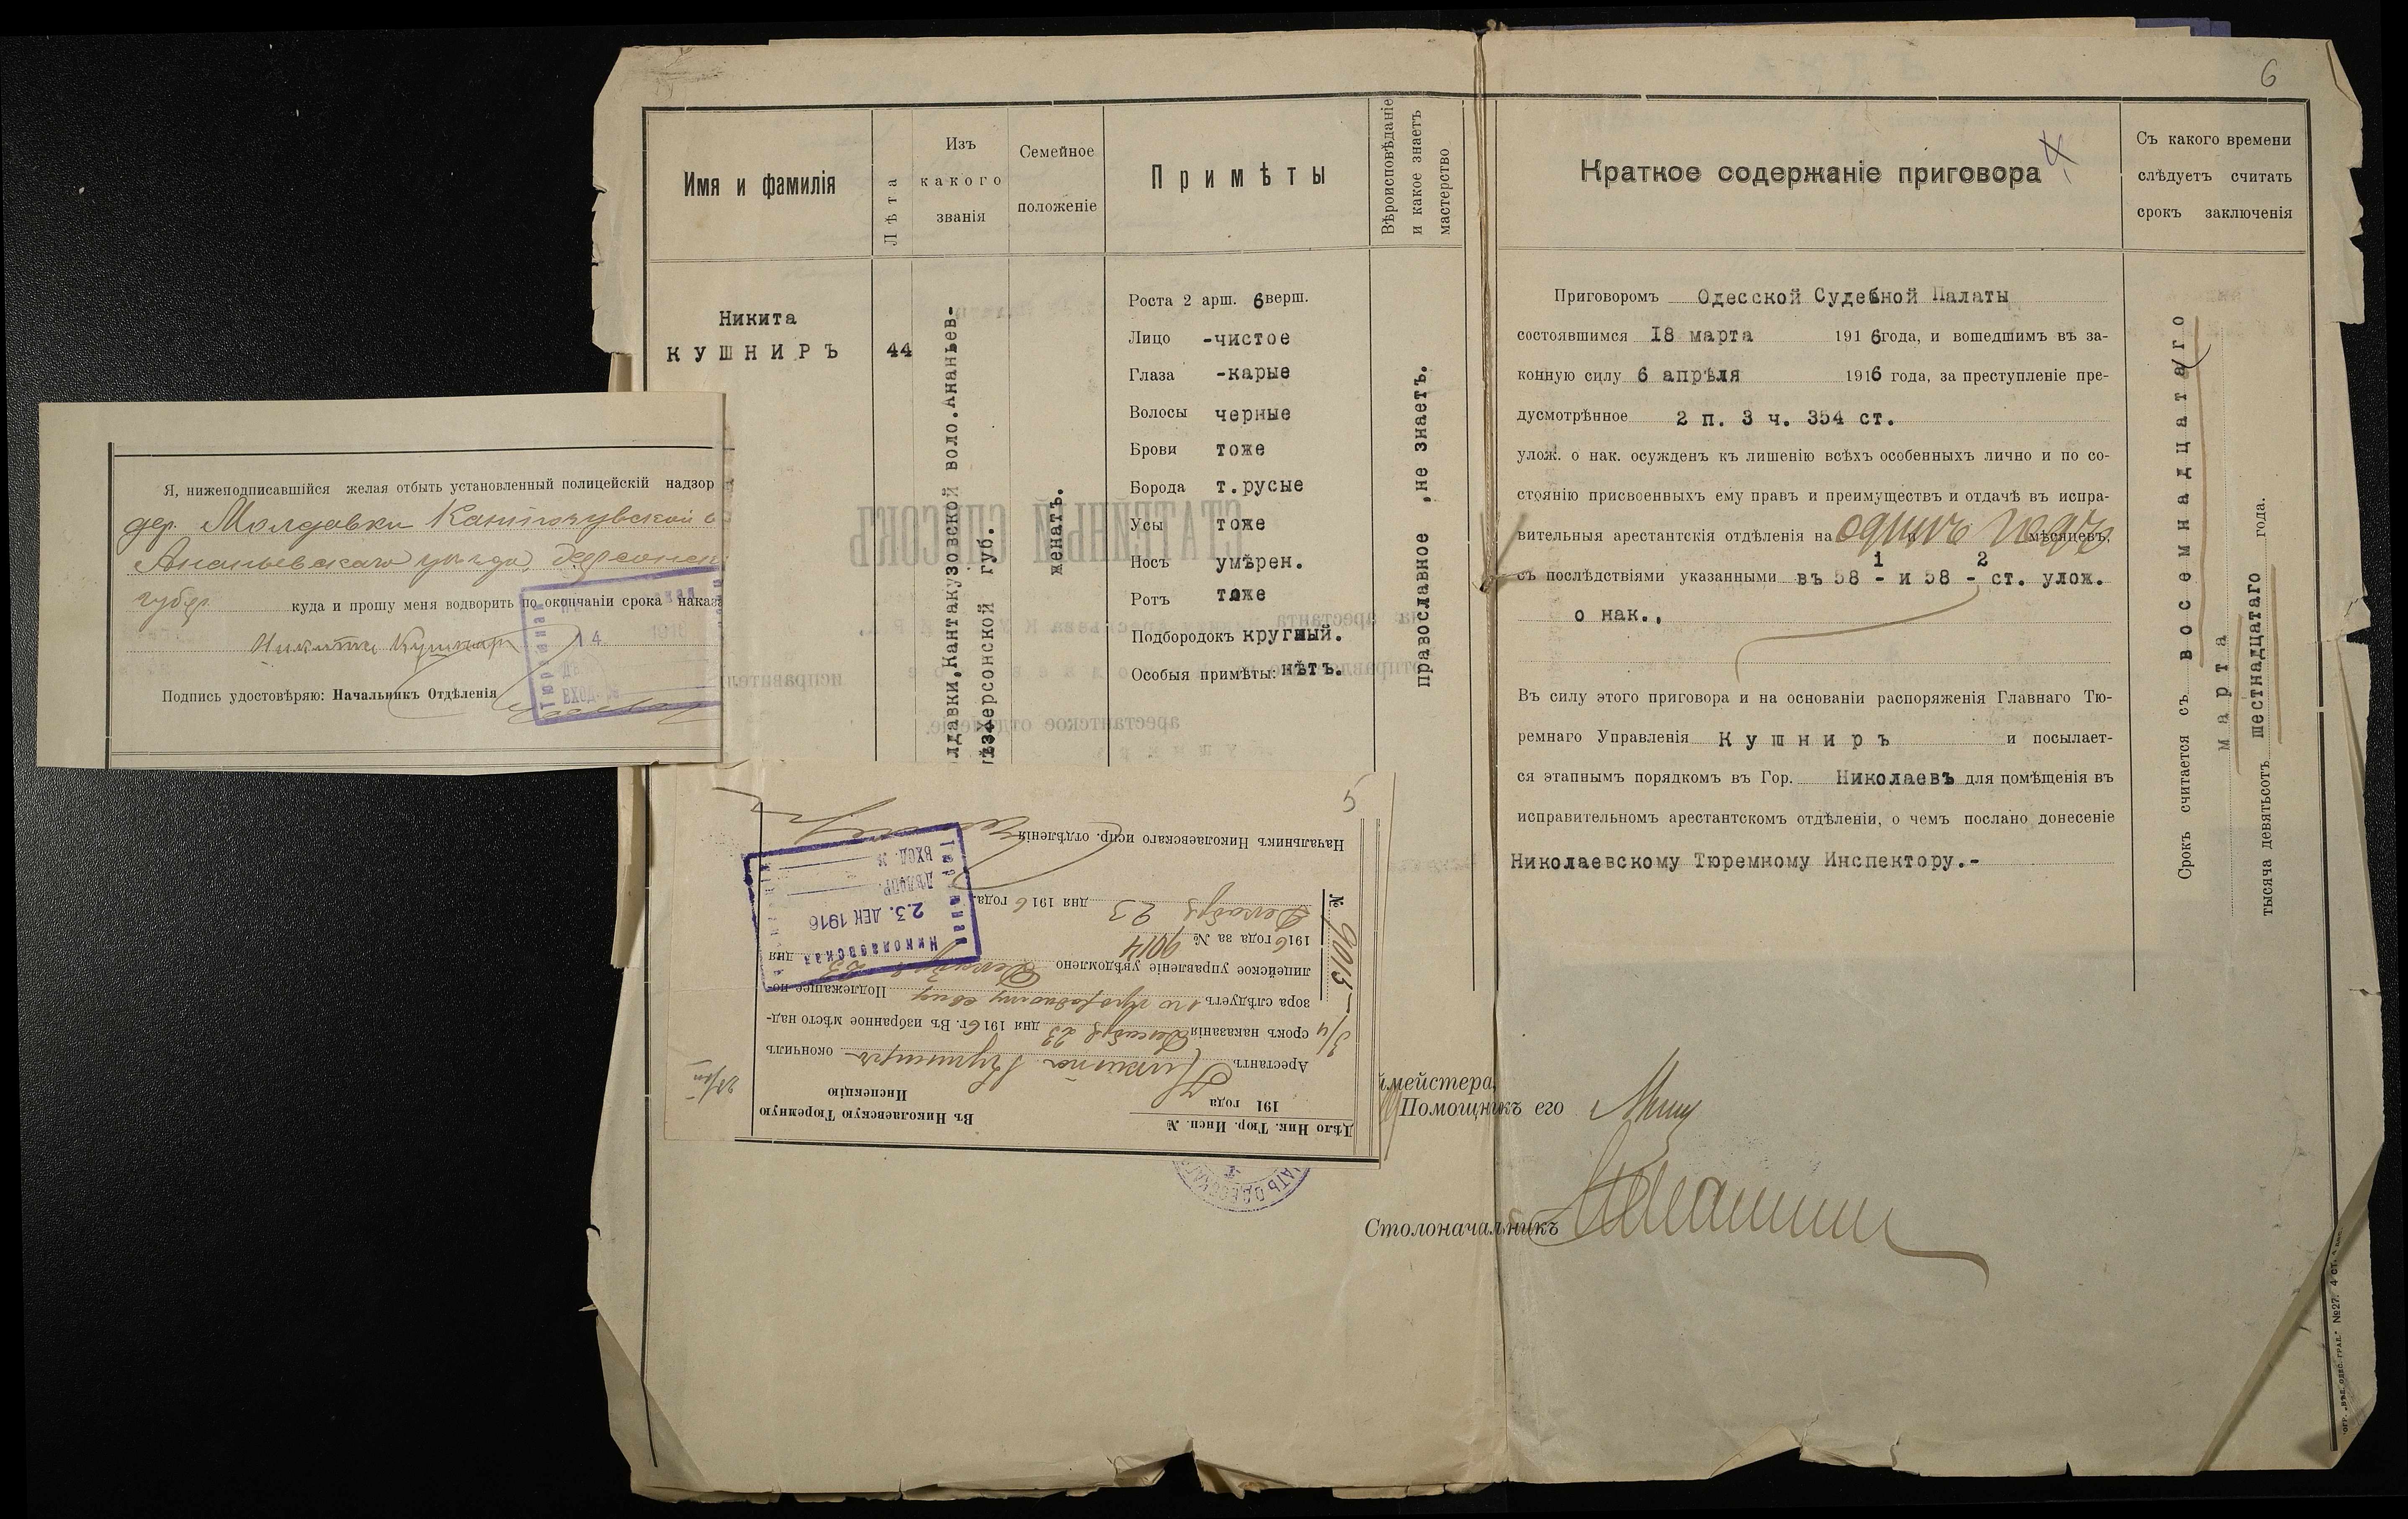 6
Имя и фамилія
Лѣта
Изъ
какого
званія
Семейное
положеніе
Примѣты
Вѣроисповѣданіе
и какое знаетъ
мастерство
Краткое содержаніе приговора
Съ какого времени
слѣдуетъ считать
срокъ заключенія
Никита
КУШНИРЪ
44
лдавки,Кантакузовской воло.Ананьев-
Херсонской губ.
женатъ.
Роста 2 арш. 6 верш.
Лицо -чистое
Глаза -карые
Волосы черные
Брови тоже
Борода т.русые
Усы тоже
Носъ умѣрен.
Ротъ тоже
Подбородокъ круглый.
Особыя примѣты: нѣтъ.
православное ,не знаетъ.
Приговоромъ Одесской Судебной Палаты
состоявшимся 18 марта 1916 года, и вошедшимъ въ за-
конную силу 6 апрѣля 1916 года, за преступленіе пре-
дусмотрѣнное 2 п. 3 ч. 354 ст.
улож. о нак. осужденъ къ лишенію всѣхъ особенныхъ лично и по со-
стоянію присвоенныхъ ему правъ и преимуществъ и отдачѣ въ испра-
вительныя арестантскія отдѣленія на одинъ годъ мѣсяцевъ,
съ послѣдствіями указанными въ 58 1 - и 58 2 - ст. улож.
о нак.,
Въ силу этого приговора и на основаніи распоряженія Главнаго Тю-
ремнаго Управленія Кушниръ и посылает-
ся этапнымъ порядкомъ въ Гор. Николаевъ для помѣщенія въ
исправительномъ арестантскомъ отдѣленіи, о чемъ послано донесеніе
Николаевскому Тюремному Инспектору.-
Срокъ считается съ восемнадцатаго
марта
тысяча девятьсотъ шестнадцатаго года.
Я, нижеподписавшійся желая отбыть установленный полицейскій надзор
дер. Молдавки Кантакузовской в
Ананьевскаго уѣзда, Херсонск
губер. куда и прошу меня водворить по окончаніи срока наказа
Никита Кушнир
Подпись удостовѣряю: Начальникъ Отдѣленія
Дѣло Ник. Тюр. Инсп. №
191 года
Въ Николаевскую Тюремную
Инспекцію
Арестантъ Никита Кушниръ окончилъ
срокъ наказанія Декабря 23 дня 1916 г. Въ избранное мѣсто над-
зора слѣдуетъ по проходному свид Подлежащее по-
лицейское управленіе увѣдомлено Декабря 23 дня
1916 года за № 9014
Декабря 23 дня 1916 года.
№ 9015
Начальникъ Николаевскаго испр. отдѣленія
5
Николаевская
23. ДЕК 1916
ДѢЛОПР.
ВХОД. №
ймейстера,
Помощникъ его
Столоначальникъ